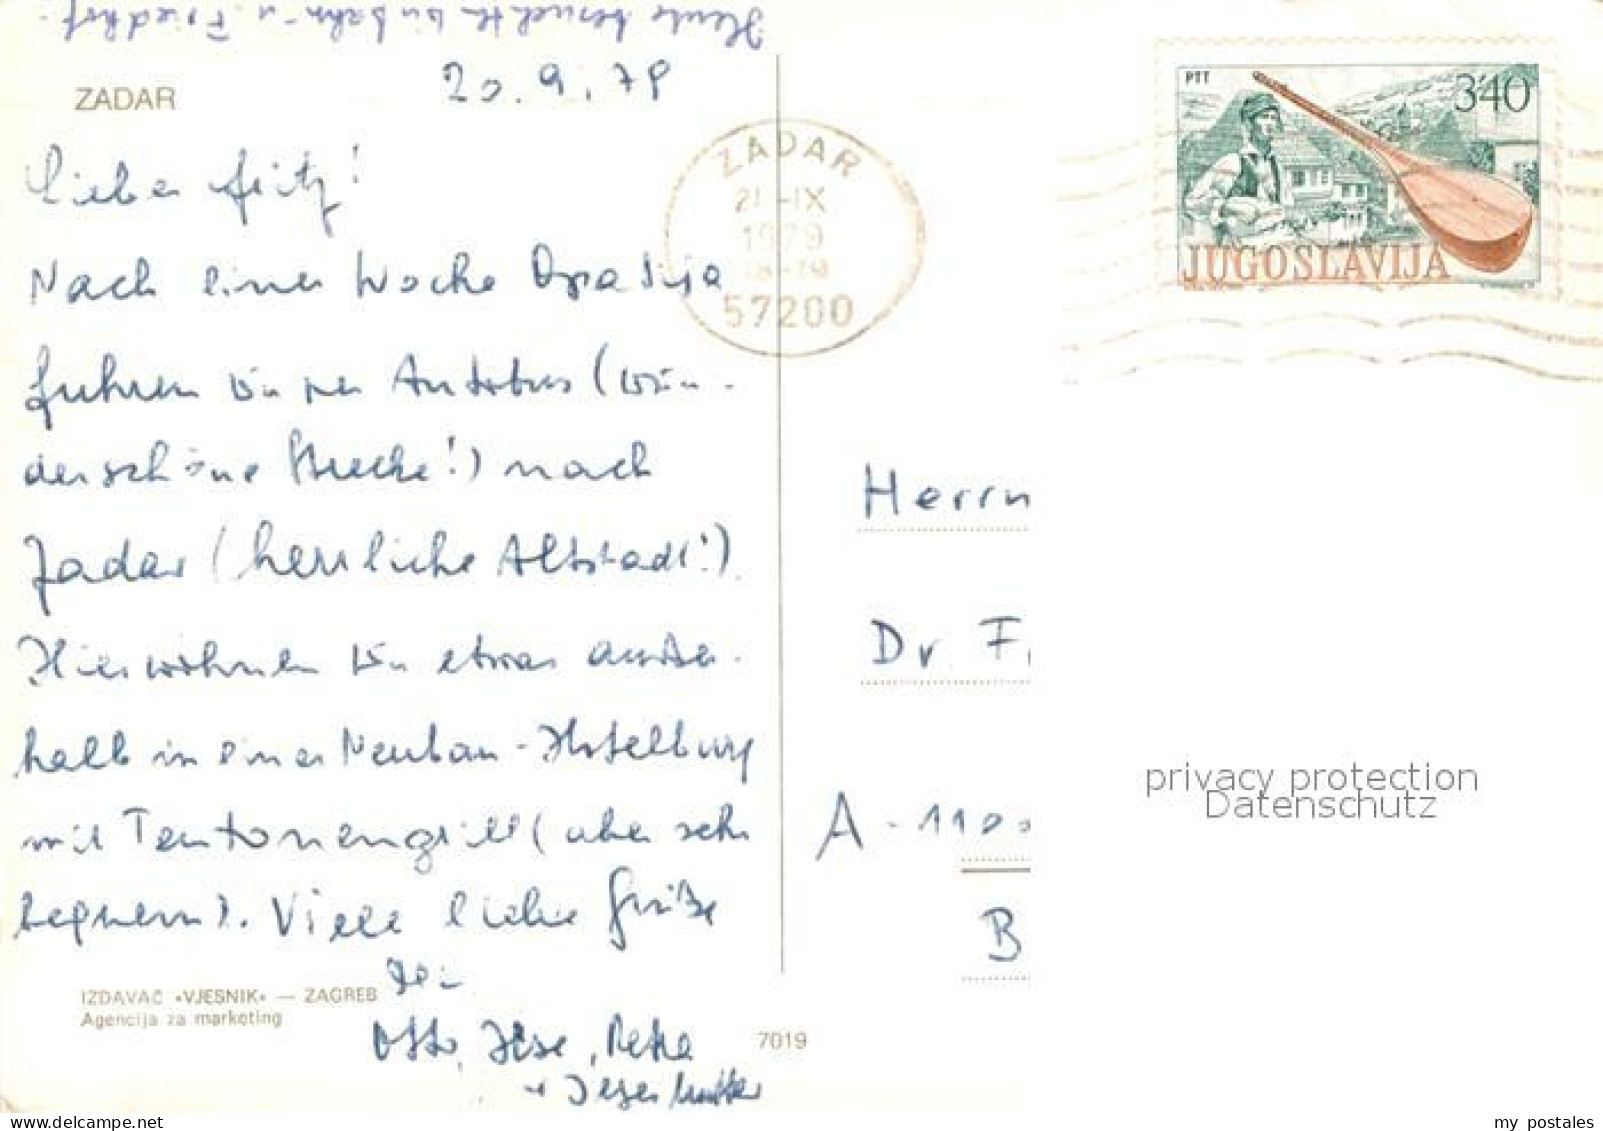 Heute besuchten wir Bahn- u. Friedhof.
20. 9. 79
ZADAR
Lieber Fritz!
Nach einer Woche Opatija
fuhren wir per Autobus (wun-
derschöne Strecke!) nach
Zadar (herrliche Altstadt!)
Hier wohnen wir etwas außer-
halb in einer Neubau-Hotelburg
mit Teutonengrill (aber sehr
bequem). Viele liebe Grüße
Dein
Otto, Ilse, Petra
+ Ilses Mutter
IZDAVAČ «VJESNIK» — ZAGREB
Agencija za marketing
7019
ZADAR
21-IX
1979
18-19
57200
PTT
3'40
JUGOSLAVIJA
Herrn
Dr. F
A-110
B
privacy protection
Datenschutz
my postales